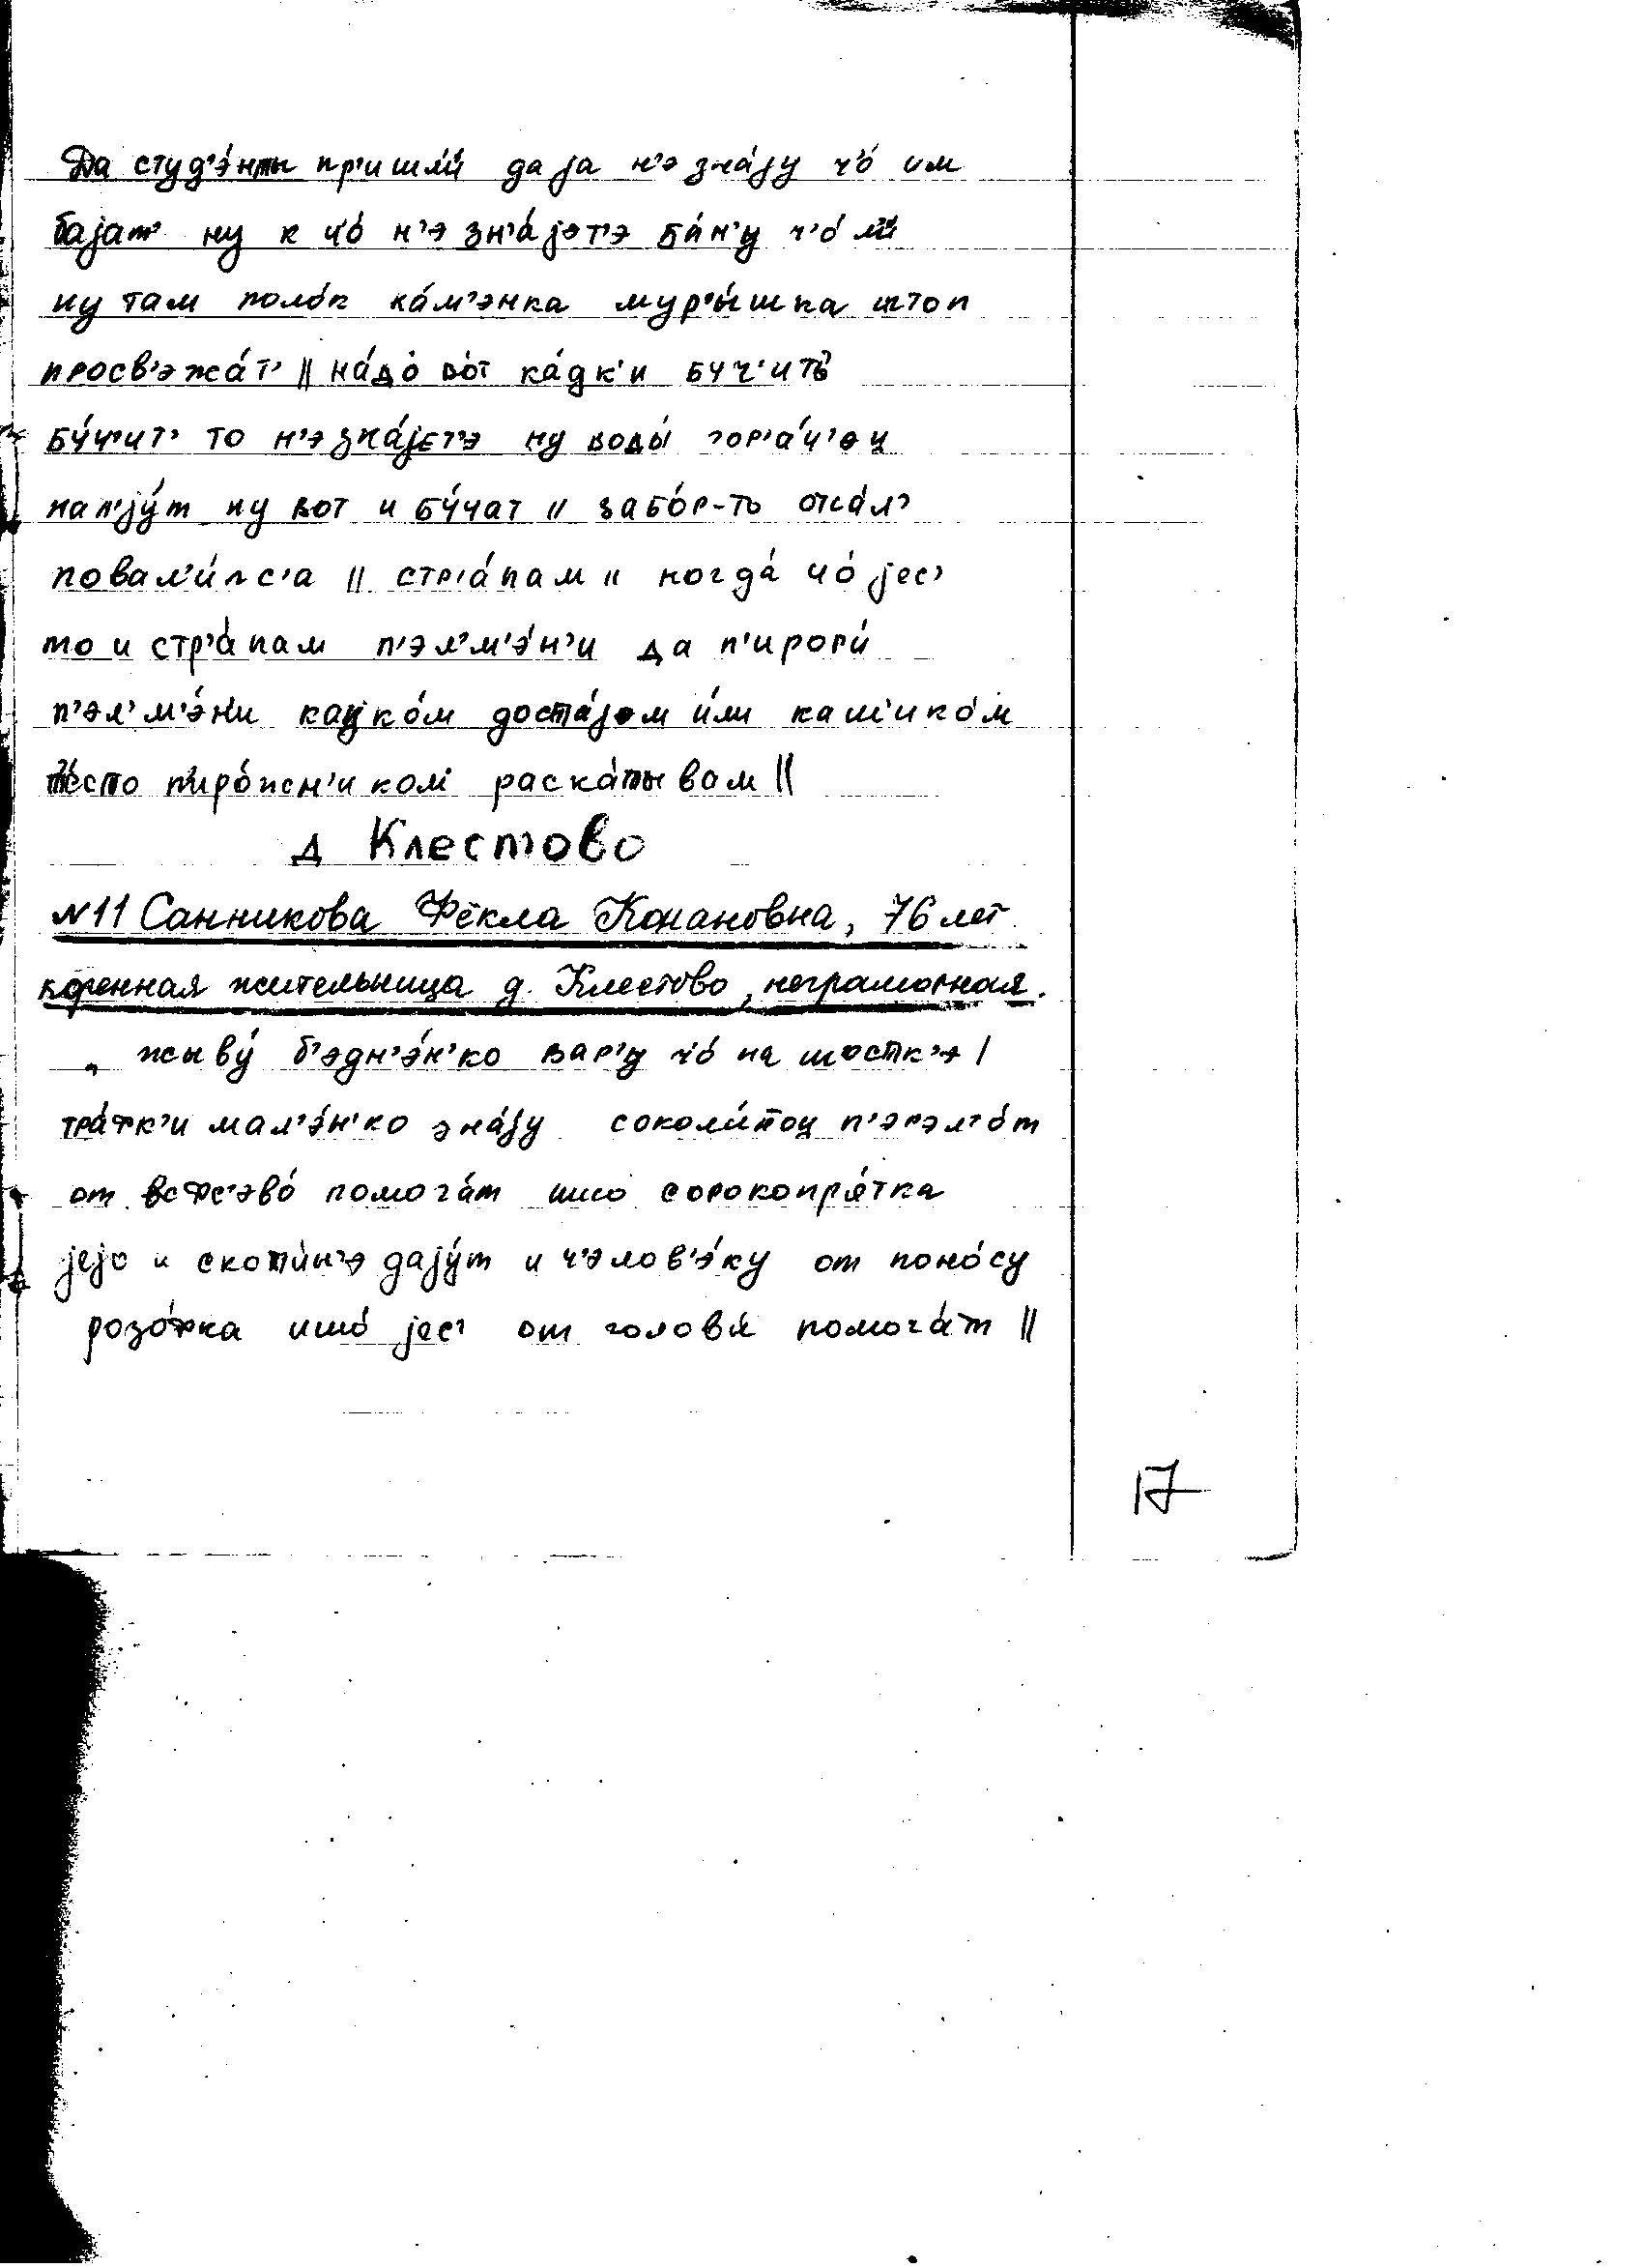 Да студ'э́нты пр'ишл'и́ да jа н'э зна́jу ч'о́ им
баjат' ну к ч'о́ н'э зн'а́jэт'э ба́н'у ч'о́ л'и
ну там поло́к ка́м'энка мур'ы́шка штоп
просв'эжа́т' || на́до во́т ка́дк'и буч'ить
бу́ч'ит' то н'э зна́jет'э ну воды́ гор'а́ч'оц
нал'jу́т ну вот и бу́чат || забо́р-тъ опса́л'
повал'и́лс'а || стр'а́пам || когда́ чо́ jес'
то и стр'а́пам п'эл'м'э́н'и да п'ироги́
п'эл'м'э́н'и кацко́м доста́jом и́ли каш'ико́м
т'е́сто п'иро́жн'иком раска́тывам ||
д Клестово
№11 Санникова Фёкла Конановна, 76 лет
коренная жительница д. Клестово, неграмотная.
„ жыву́ б'эдн'э́н'ко вар'у ч'о́ на шостк'э |
тра́фк'и мал'э́н'ко зна́jу соколи́тоц п'эрэл'о́т
от фс'эво́ помога́т ишо сорокопря́тка
jеjо и скоти́н'э даjу́т и ч'элов'э́ку от поно́су
розо́фка ишо́ jес' от головы́ помога́т ||
17